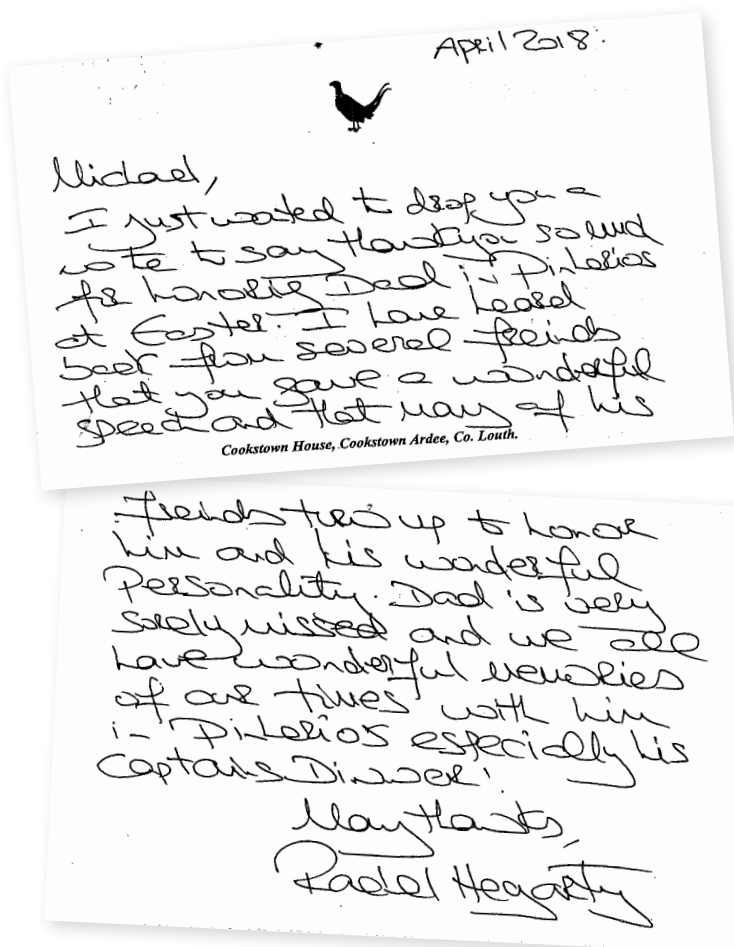 April 2018.
Michael,
I just wanted to drop you a
note to say thank you so much
for honoring Dad in DiLosios
at Easter. I have heard
back from several freinds
that you gave a wonderful
speech and that many of his
Cookstown House, Cookstown Ardee, Co. Louth.
freinds turned up to honor
him and his wonderful
Personality. Dad is very
sorely missed and we all
have wonderful memories
of our times with him
in DiLosio's especially his
Captains Dinner!
Many thanks,
Rachel Hegarty